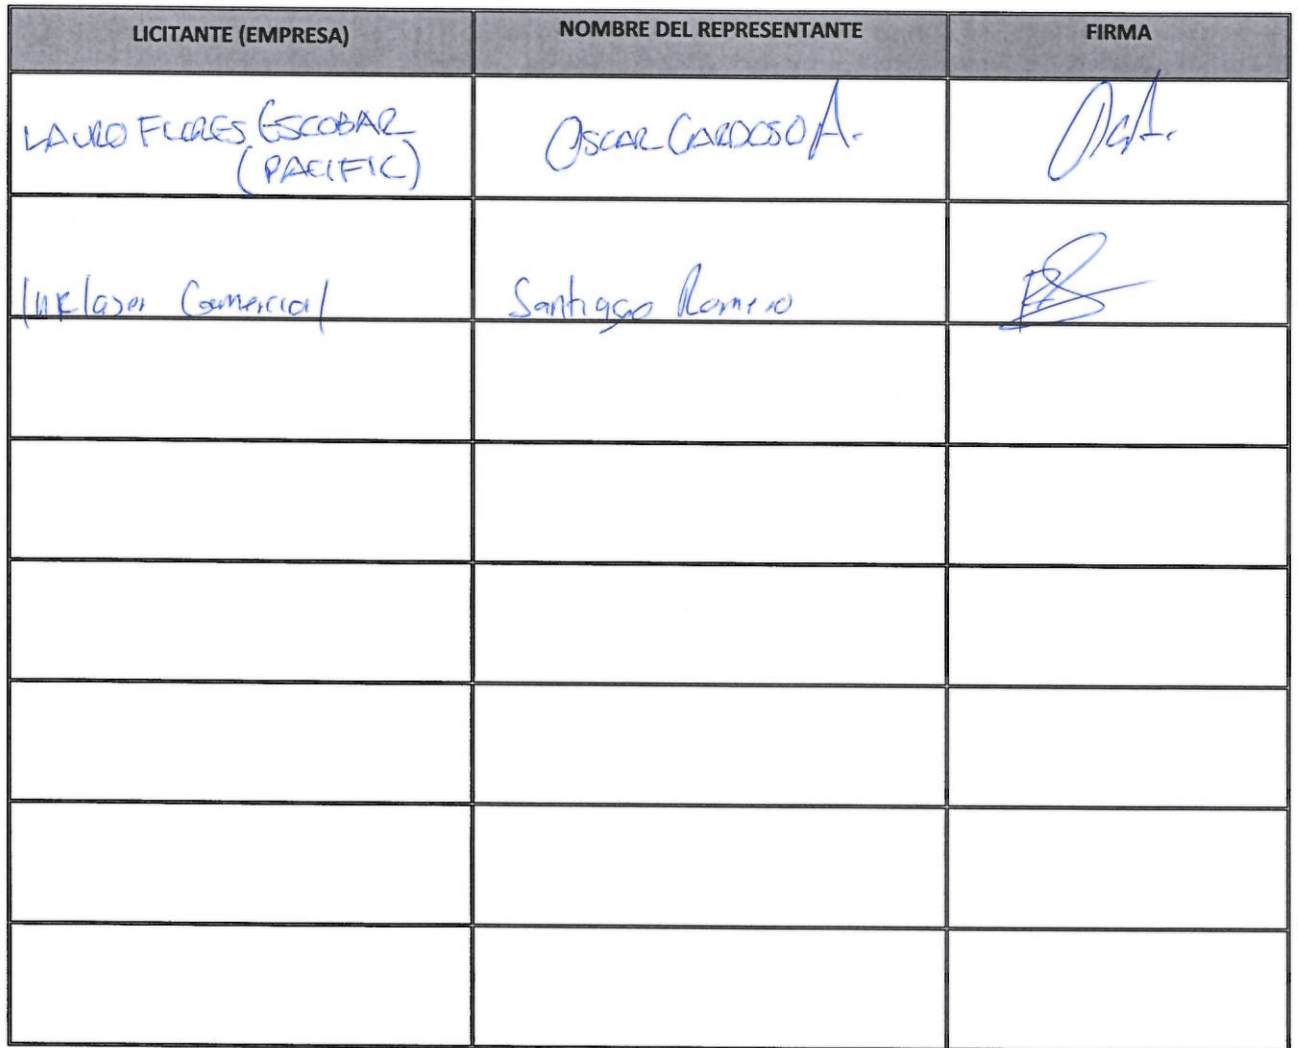 LICITANTE (EMPRESA) NOMBRE DEL REPRESENTANTE FIRMA
LAURO FLORES ESCOBAR OSCAR CARDOSO A.
(PACIFIC)
Inklaser Comercial Santiago Romero